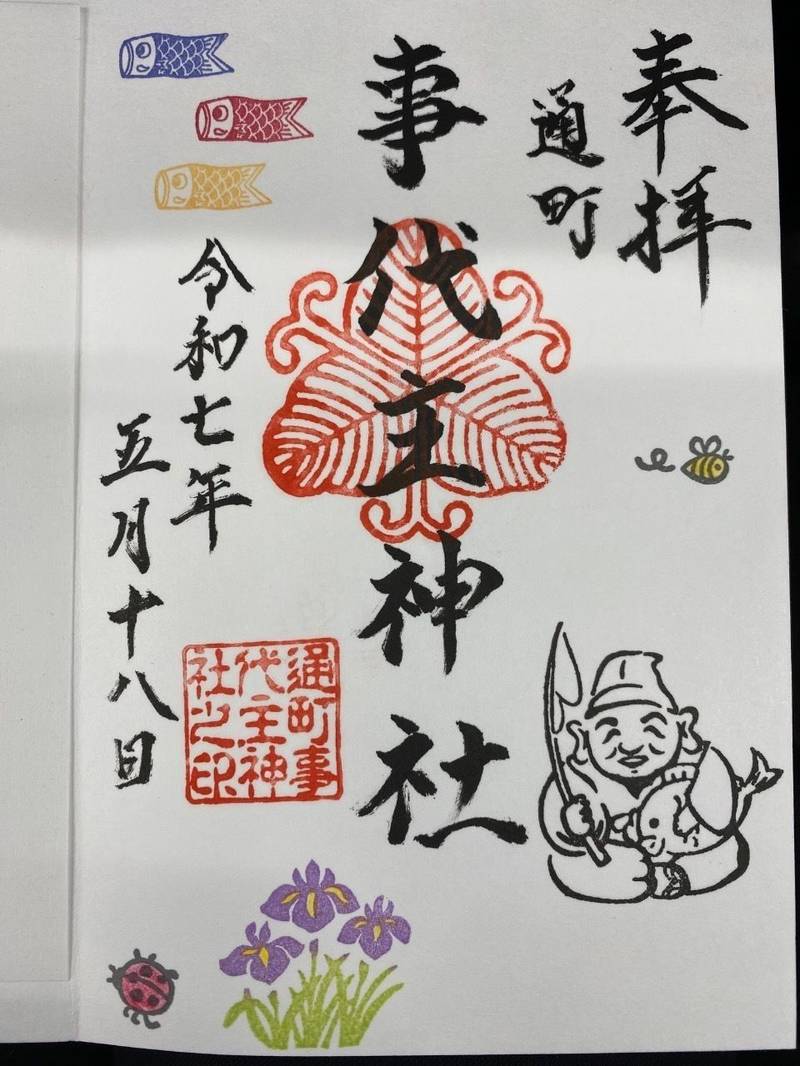 奉拝
通町
事代主神社
通町事
代主神
社之印
令和七年
五月十八日